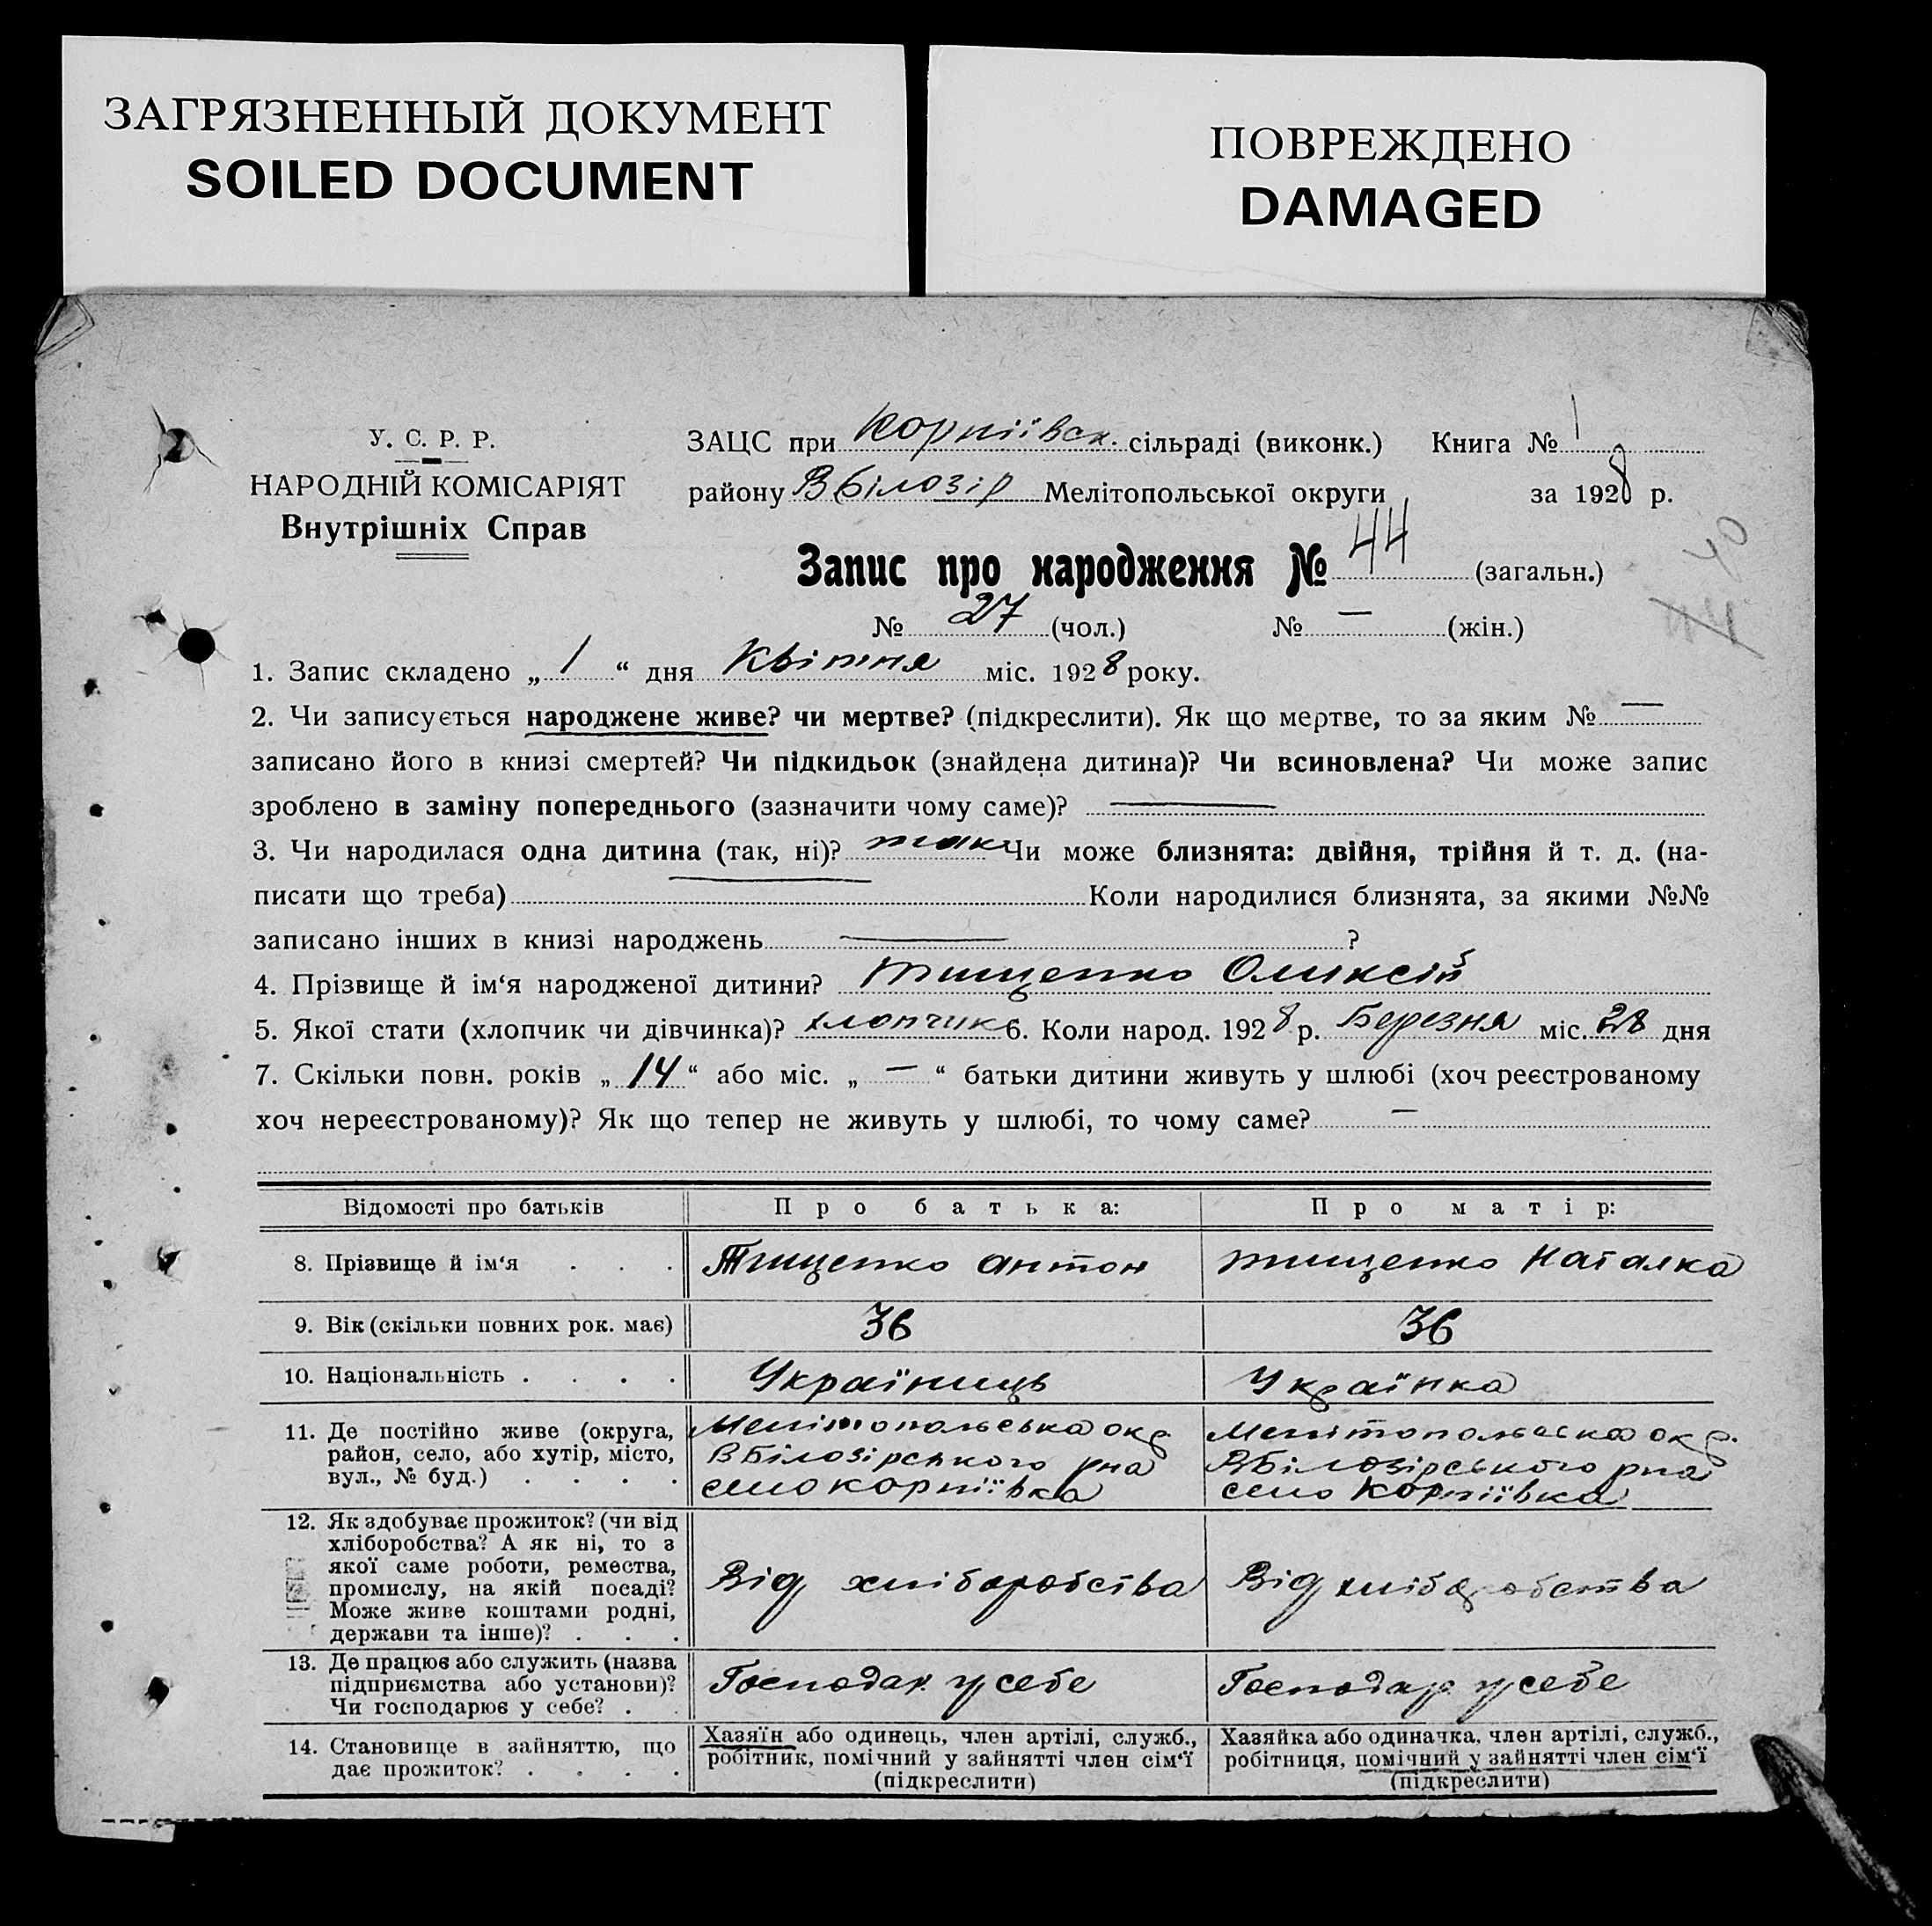 ЗАГРЯЗНЕННЫЙ ДОКУМЕНТ
SOILED DOCUMENT
ПОВРЕЖДЕНО
DAMAGED
У. С. Р. Р.
НАРОДНІЙ КОМІСАРІЯТ
Внутрішніх Справ
ЗАЦС при Корніївск. сільраді (виконк.) Книга № 1
району ВБілозір Мелітопольської округи за 1928 р.
Запис про народження № 44 (загальн.)
40
44
№ 27 (чол.) № — (жін.)
1. Запис складено „ 1 “ дня Квітня міс. 1928 року.
2. Чи записується народжене живе? чи мертве? (підкреслити). Як що мертве, то за яким № —
записано його в книзі смертей? Чи підкидьок (знайдена дитина)? Чи всиновлена? Чи може запис
зроблено в заміну попереднього (зазначити чому саме)? —
3. Чи народилася одна дитина (так, ні)? так Чи може близнята: двійня, трійня й т. д. (на-
писати що треба) — Коли народилися близнята, за якими №№
записано інших в книзі народжень — ?
4. Прізвище й ім‘я народженої дитини? Тищенко Оликсій
5. Якої стати (хлопчик чи дівчинка)? хлопчик 6. Коли народ. 1928 р. Березня міс. 28 дня
7. Скільки повн. років „ 14 “ або міс. „ — “ батьки дитини живуть у шлюбі (хоч реєстрованому
хоч нереєстрованому)? Як що тепер не живуть у шлюбі, то чому саме? —
Відомості про батьків Про батька: Про матір:
8. Прізвище й ім‘я . . . Тищенко Антон Тищенко Наталка
9. Вік (скільки повних рок. має) 36 36
10. Національність . . . . Україниць Українка
11. Де постійно живе (округа, район, село, або хутір, місто, вул., № буд.) . . . .
Мелітопольська окр
ВБілозірського рна
село Корніївка
Мелітопольська окр.
ВБілозірського рна
село Корніївка
12. Як здобуває прожиток? (чи від
хліборобства? А як ні, то з
якої саме роботи, ремества,
промислу, на якій посаді?
Може живе коштами родні,
держави та інше)? . . .
Від хліборобства Від хліборобства
13. Де працює або служить (назва
підприємства або установи)?
Чи господарює у себе? . .
Господар у себе Господар у себе
14. Становище в зайняттю, що
дає прожиток? . . . .
Хазяїн або одинець, член артілі, служб.,
робітник, помічний у зайнятті член сім‘ї
(підкреслити)
Хазяйка або одиначка, член артілі, служб.,
робітниця, помічний у зайнятті член сім‘ї
(підкреслити)